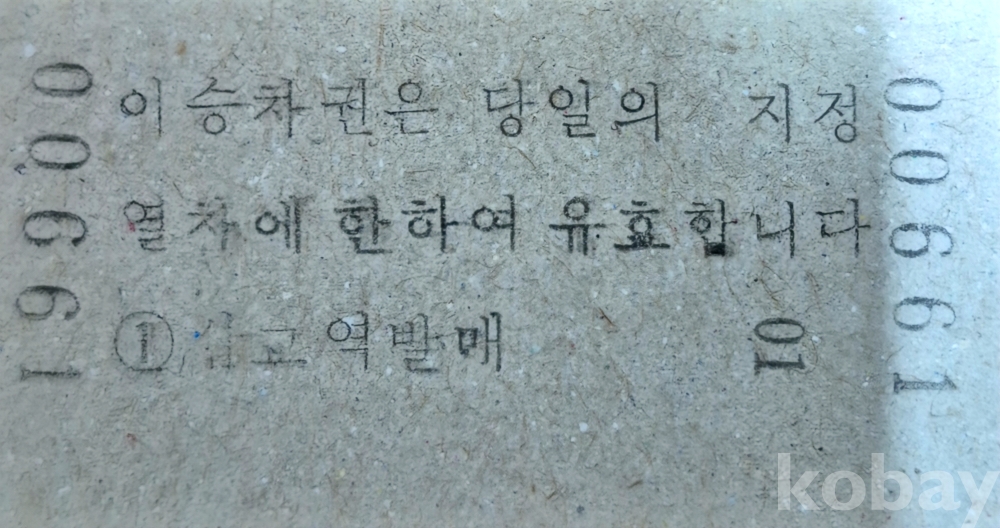 00661
이 승차권은 당일의 지정
열차에 한하여 유효합니다
① 역발매 01
00661
kobay